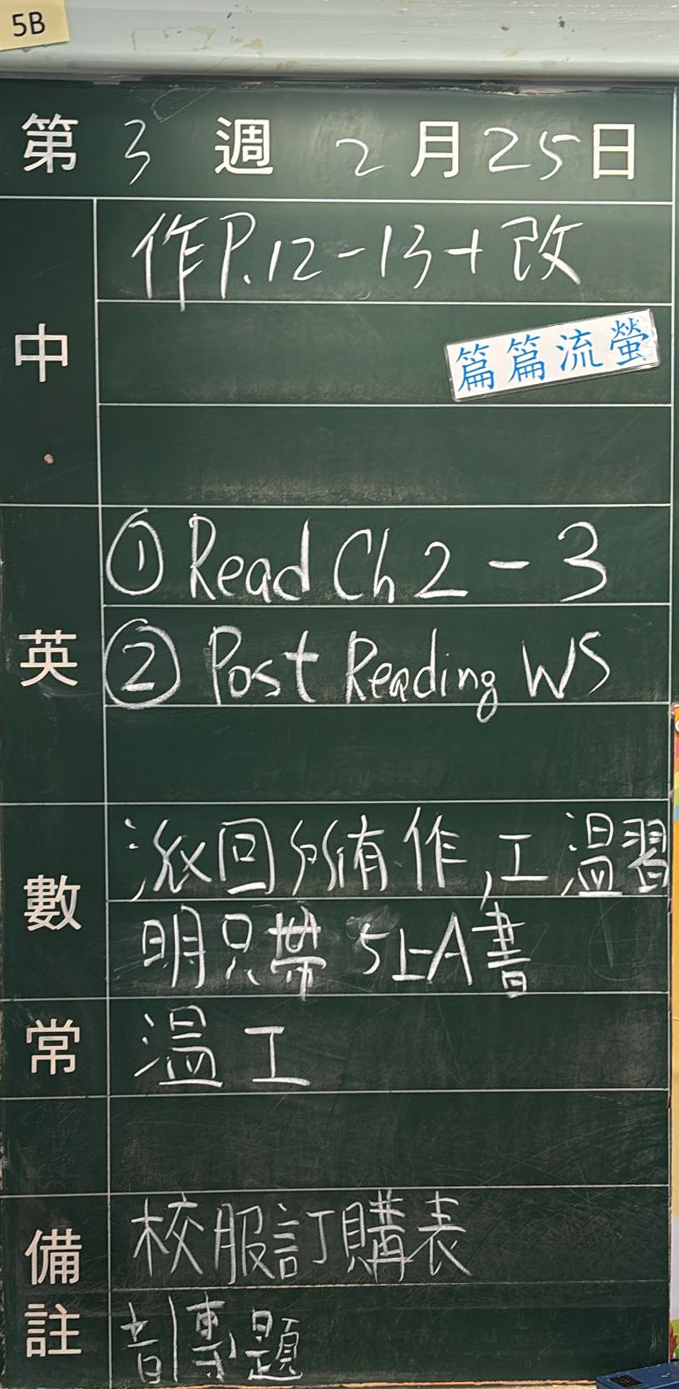 5B
第 3 週 2 月 25 日
中
作P.12-13+改
篇篇流螢
英
① Read Ch 2 - 3
② Post Reading WS
數
派回所有作,工 溫習
明只帶 5上A書
常
溫工
備註
校服訂購表
音|專題